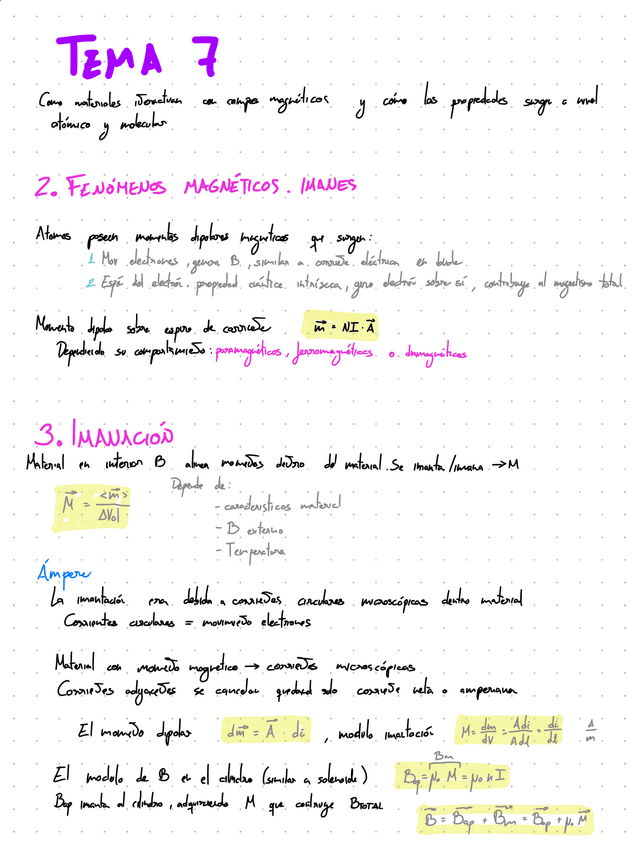 TEMA 7
Como materiales interactuan con campos magnéticos y cómo las propiedades surge a nivel
atómico y molecular
2. FENÓMENOS MAGNÉTICOS. IMANES
Atomos poseen momentos dipolares magnéticos que surgen:
1 Mov electrones, genera B, similar a corriente eléctrica en bucle
2 Espín del electrón. propiedad cuántica intrínseca, giro electrón sobre sí, contribuye al magnetismo total
Momento dipolar sobre espira de corriente m⃗ = NI · A⃗
Dependiendo su comportamiento: paramagnéticos, ferromagnéticos o diamagnéticos
3. IMANACIÓN
Material en interior B alinea momentos dentro del material. Se imanta/imana → M
M⃗ = <m⃗> / ΔVol
Depende de:
- características material
- B externo
- Temperatura
Ámpere
La imantación era debida a corrientes circulares microscópicas dentro material
Corrientes circulares = movimiento electrones
Material con momento magnético → corrientes microscópicas
Corrientes adyacentes se cancelan quedand solo corriente neta o amperiana
El momento dipolar dm⃗ = A⃗ · di, modulo imantación M = dm/dV = Adi/Adl = di/dl A/m
Bm
El modulo de B en el cilindro (similar a solenoide) Bap = μ₀ M = μ₀ n I
Bap imanta al cilindro, adquiriendo M que construye BTOTAL
B⃗ = B⃗ap + B⃗m = B⃗ap + μ₀ M⃗